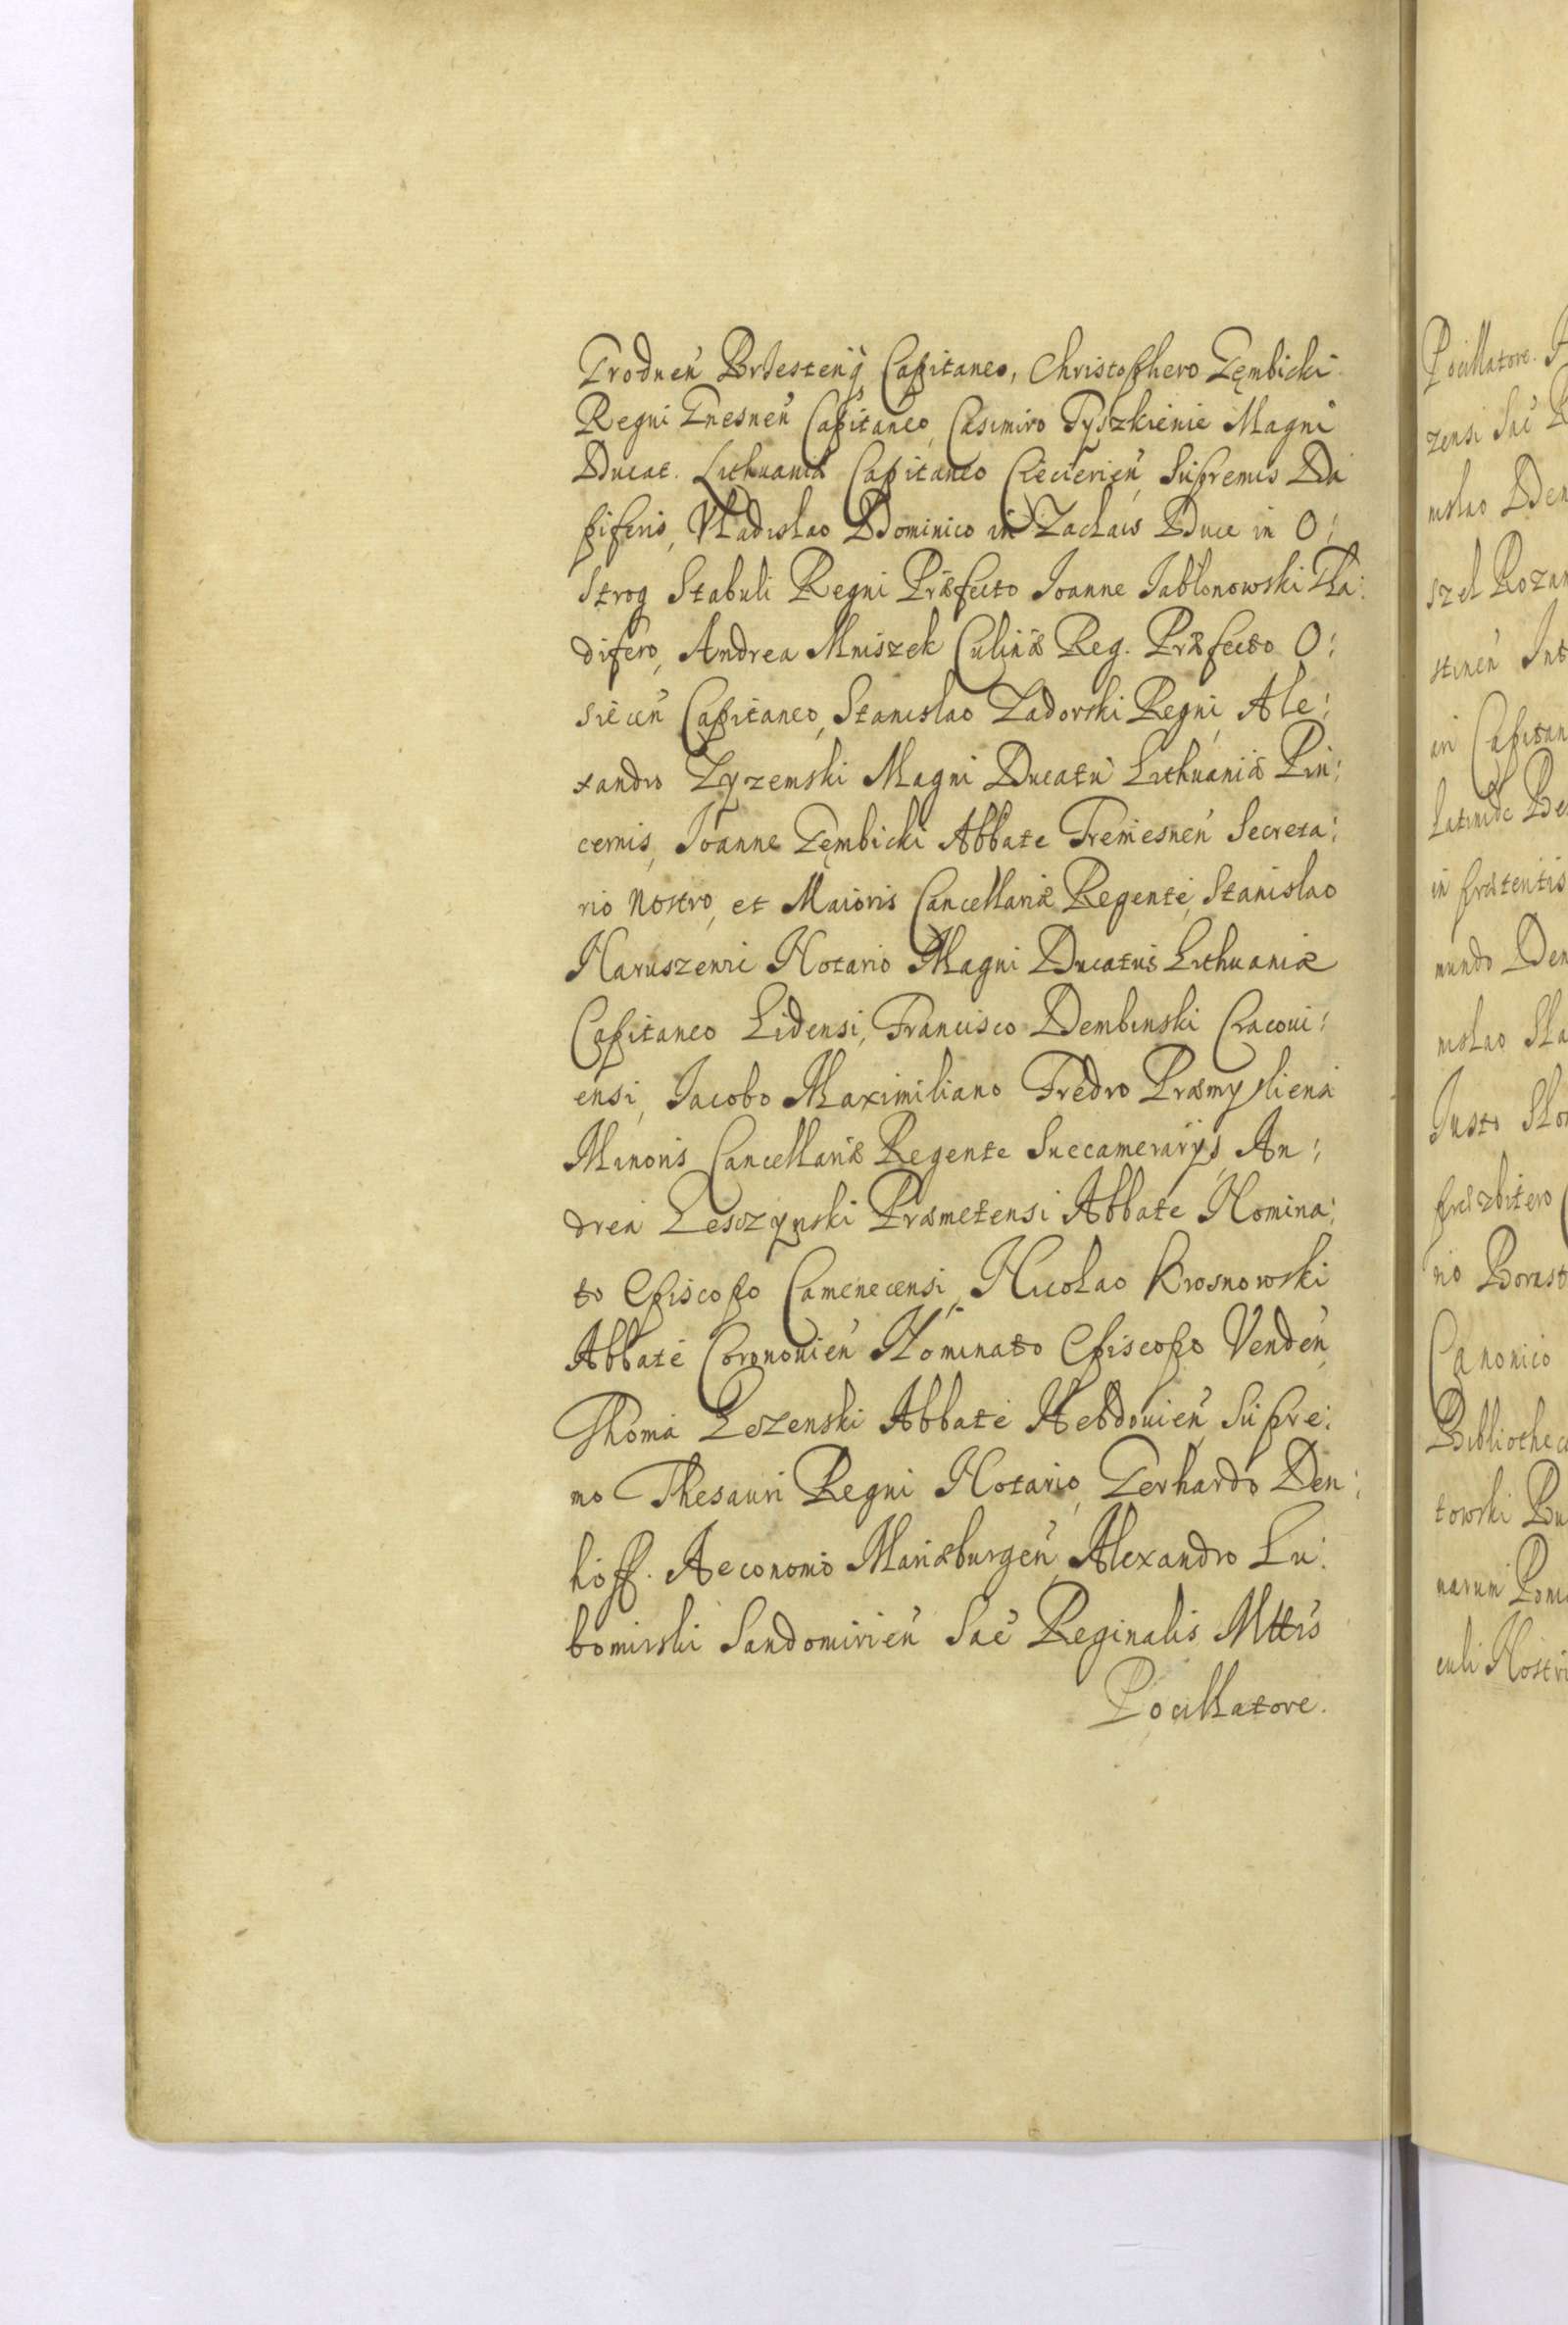 Grodnen̄ Brzestenq̃ Capitaneo, Christophero Gęmbicki
Regni Gnesnen̄ Capitaneo, Casimiro Tyszkienic Magni
Ducat. Lithuaniæ Capitaneo Cieciersien̄, Supremis Da
piferis, Vladislao Dominico in Zaslaw Duce in O:
strog Stabuli Regni Præfecto Joanne Jabłonowski Gla:
difero, Andrea Mniszek Culinæ Reg. Præfecto O:
siecen̄ Capitaneo, Stanislao Zadorski Regni, Ale:
xandro Zyzemski Magni Ducatu Lithuaniæ Pin:
cernis, Joanne Gęmbicki Abbate Tremesnen̄ Secreta:
rio Nostro, et Maioris Cancellariæ Regente, Stanislao
Naruszewic Notario Magni Ducatus Lithuaniæ
Capitaneo Lidensi, Francisco Dembinski Cracoui:
ensi, Jacobo Maximiliano Fredro Præmysliensi
Minoris Cancellariæ Regente Succamerarÿs, An:
drea Lesczynski Præmetensi Abbate Nomina:
to Episcopo Camenecensi, Nicolao Krosnowski
Abbate Coronouien̄ Nominato Episcopo Venden̄,
Thoma Lezenski Abbate Hebdouien̄, Supre:
mo Thesauri Regni Notario, Gerhardo Den:
hoff. Aeconomo Mariæburgen̄, Alexandro Lu:
bomirski Sandomirien̄ Sac̄ Reginalis Mttis
Pocillatore.
Pocillatore.
zensi Sac̄
nislao Den
szel Rozra
stinen̄ Int
in Capitan
Latinidc
in prætentis
mundo Den
nislao Sta
Justo Slo
præzbitero
rio
Canonico
Bibliothe
towski
narum
culi Nostri